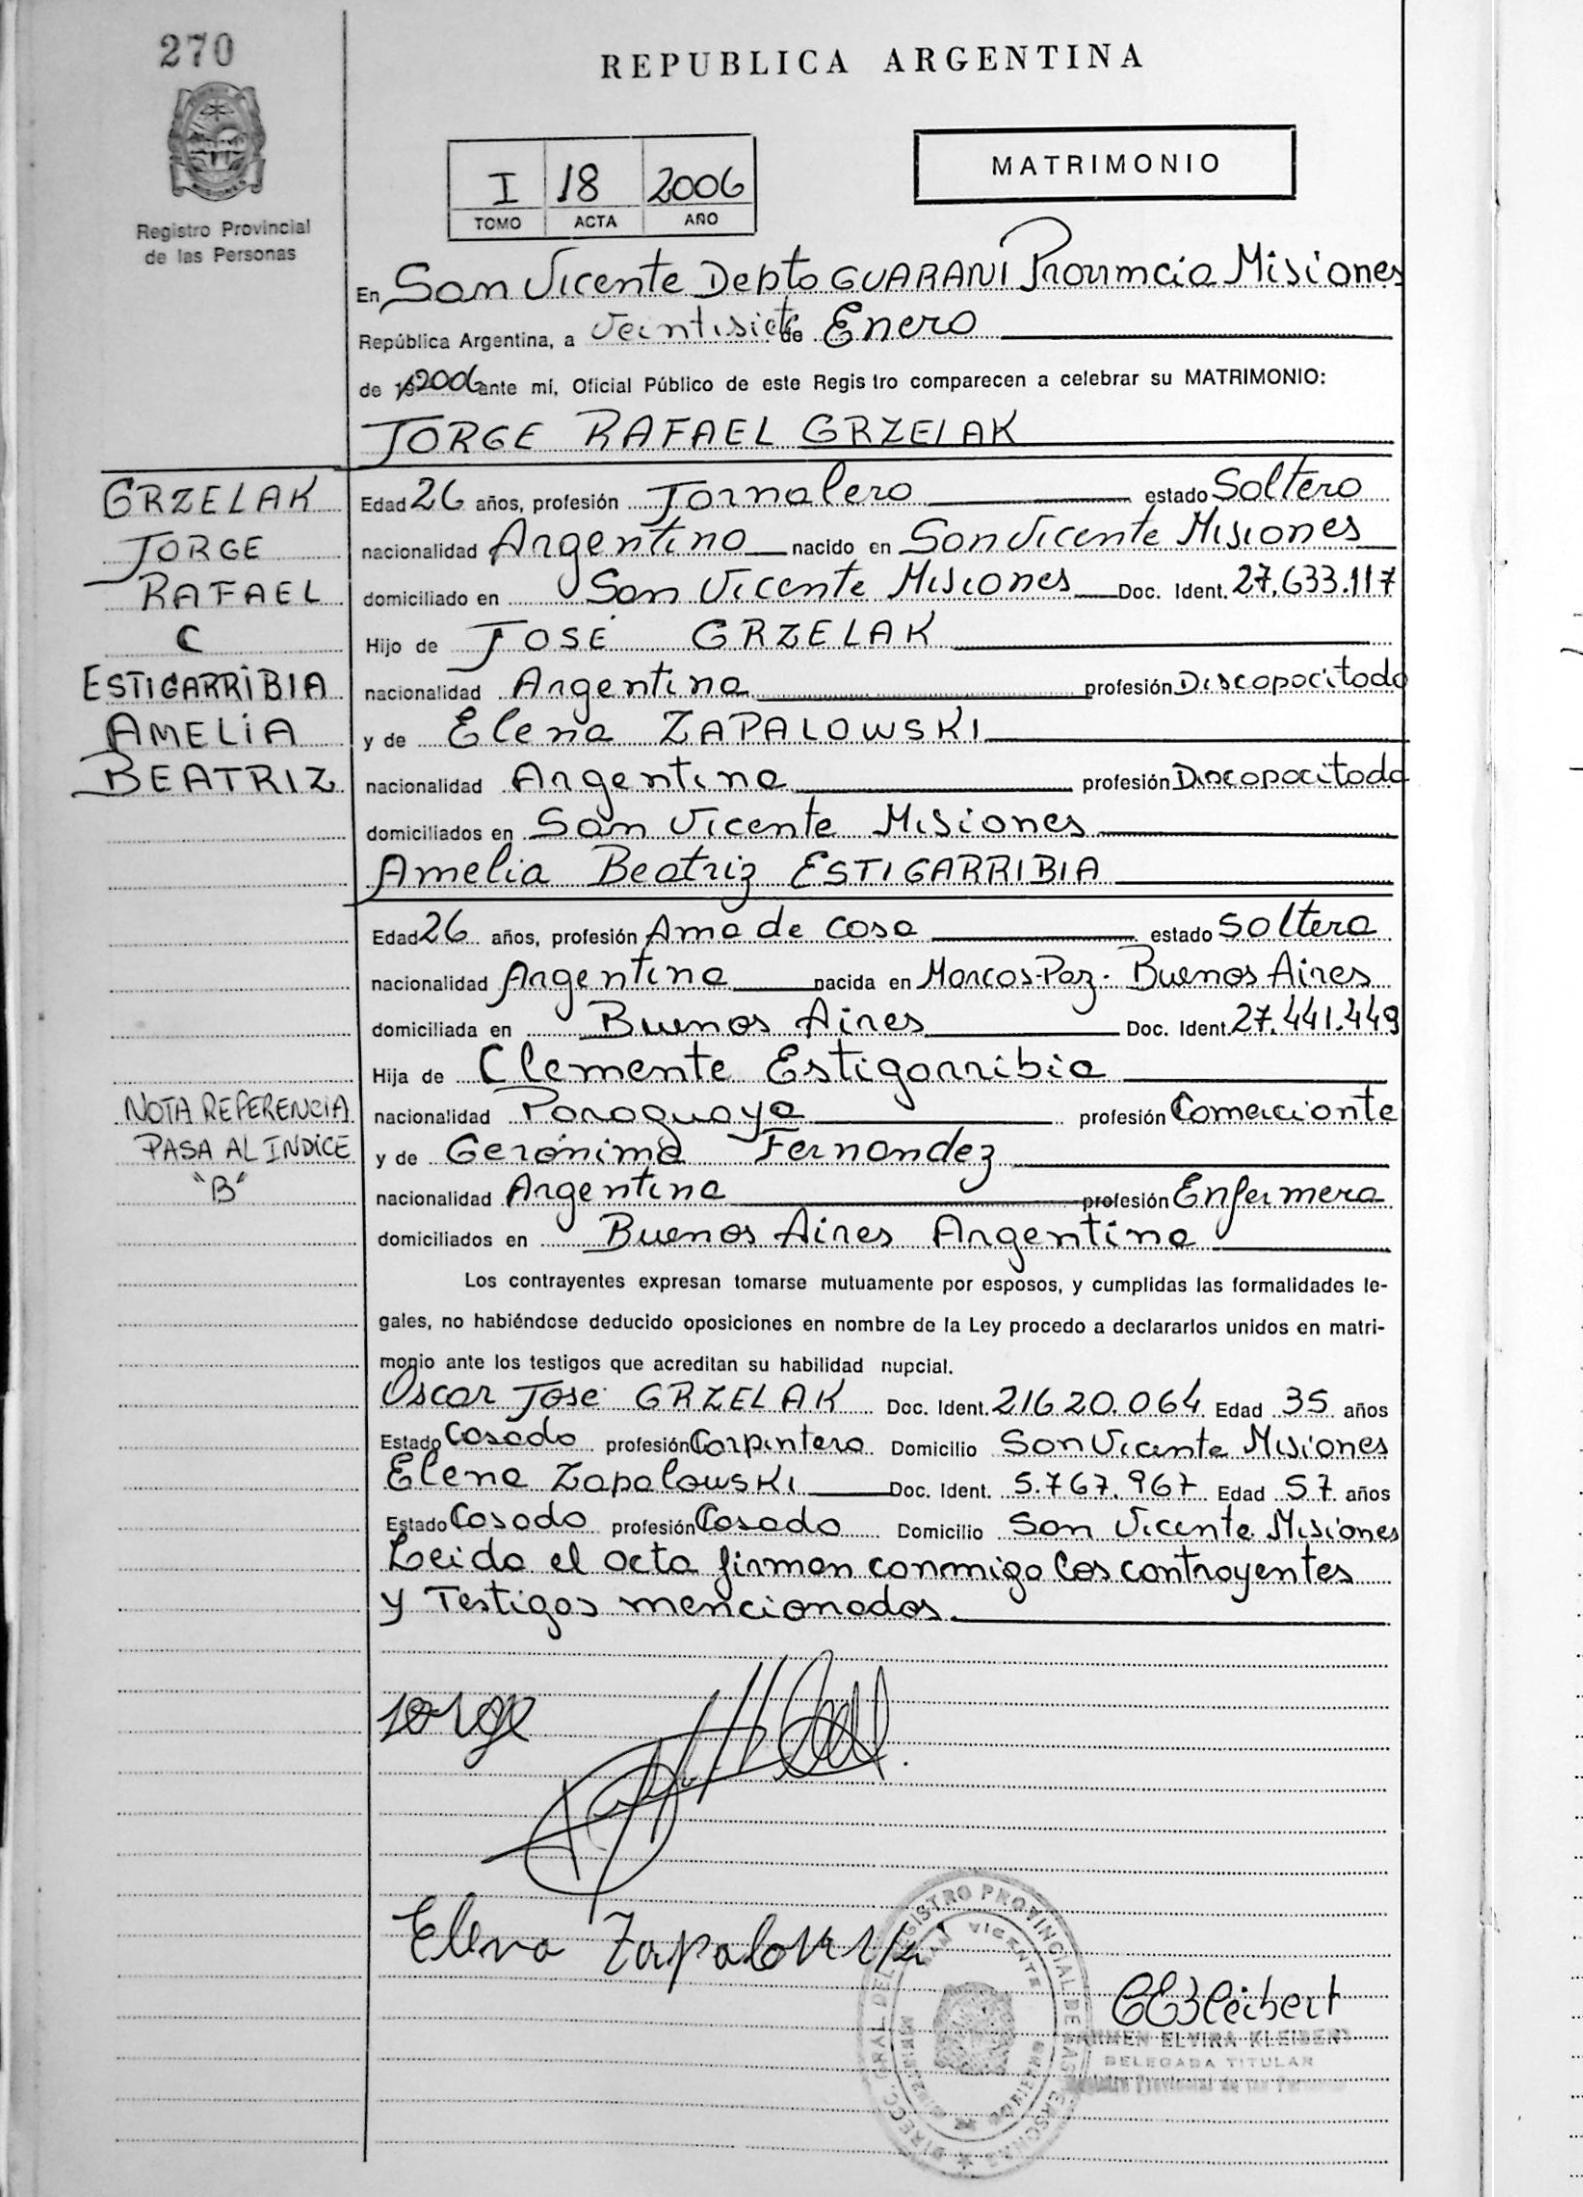 270
REPUBLICA ARGENTINA
Registro Provincial
de las Personas
I 18 2006
TOMO ACTA AÑO
MATRIMONIO
En San Vicente Depto GUARANI Provincia Misiones
República Argentina, a Veintisiete de Enero
de 2006 ante mí, Oficial Público de este Registro comparecen a celebrar su MATRIMONIO:
JORGE RAFAEL GRZELAK
GRZELAK
JORGE
RAFAEL
C
ESTIGARRIBIA
AMELIA
BEATRIZ
Edad 26 años, profesión Jornalero estado Soltero
nacionalidad Argentino nacido en San Vicente Misiones
domiciliado en San Vicente Misiones Doc. Ident. 27.633.117
Hijo de JOSÉ GRZELAK
nacionalidad Argentina profesión Discapacitado
y de Elena ZAPALOWSKI
nacionalidad Argentina profesión Discapacitada
domiciliados en San Vicente Misiones
Amelia Beatriz ESTIGARRIBIA
Edad 26 años, profesión Ama de casa estado Soltera
nacionalidad Argentina nacida en Marcos-Paz- Buenos Aires
domiciliada en Buenos Aires Doc. Ident. 27.441.449
Hija de Clemente Estigarribia
nacionalidad Paraguaya profesión Comerciante
y de Gerónima Fernandez
nacionalidad Argentina profesión Enfermera
domiciliados en Buenos Aires Argentina
NOTA REFERENCIA
PASA AL INDICE
"B"
Los contrayentes expresan tomarse mutuamente por esposos, y cumplidas las formalidades le-
gales, no habiéndose deducido oposiciones en nombre de la Ley procedo a declararlos unidos en matri-
monio ante los testigos que acreditan su habilidad nupcial.
Oscar José GRZELAK Doc. Ident. 21620.064 Edad 35 años
Estado Casado profesión Carpintero Domicilio San Vicente Misiones
Elena Zapalowski Doc. Ident. 5.767.967 Edad 57 años
Estado Casado profesión Casado Domicilio San Vicente Misiones
Leida el acta firman conmigo los contrayentes
y Testigos mencionados.
Jorge
Elena Zapalowski
CEKleibert
ELVIRA KLEIBERT
DELEGADA TITULAR
Registro Provincial de las Personas
DIRECC. GRAL. DEL REGISTRO PROVINCIAL DE LAS PERSONAS
SAN VICENTE